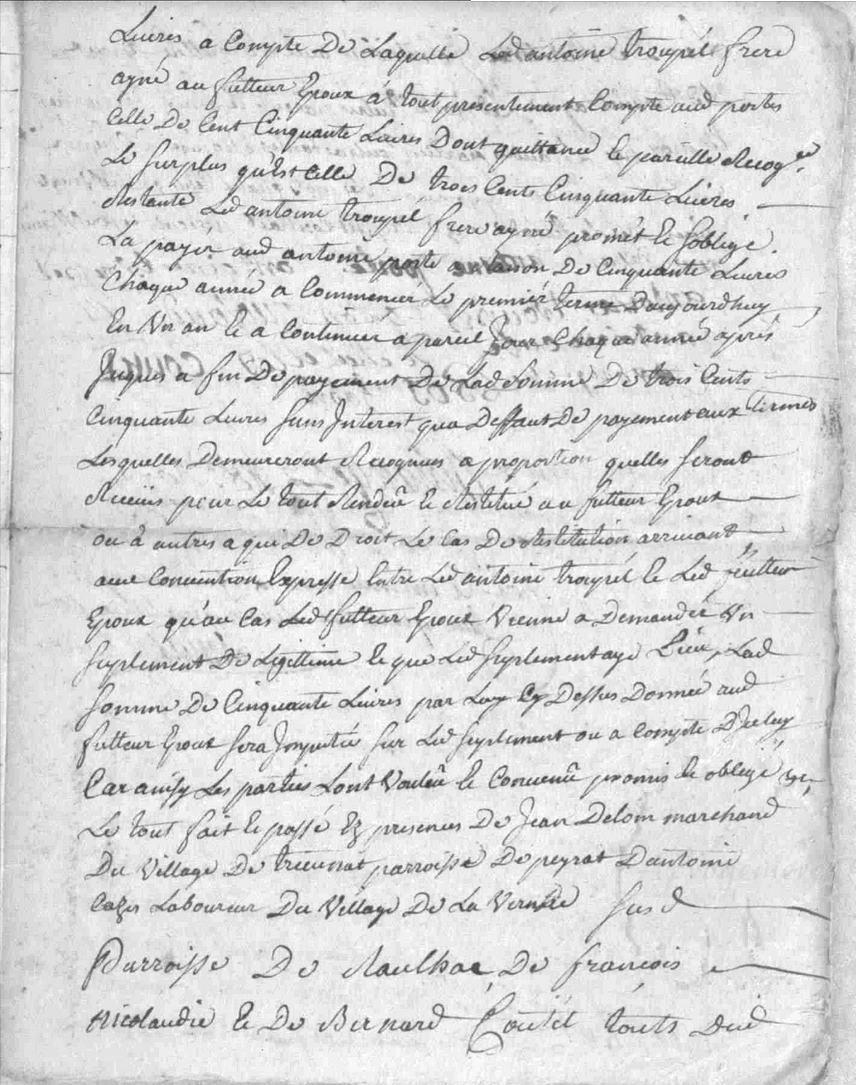 Livres a Compte De Laquelle Led antoine troupel frere
ayné au futteur Epoux a tout presentement Compté aud portes
Celle De Cent Cinquante Livres Dont quittance le pareille Recog.ce
Le surplus qu'Est Celle De trois Cents Cinquante Livres
Restante Led antoine troupel frere ayné promet le soblige
La payer aud antoine porte a raison De Cinquante Livres
Chaque année a Commencer Le premier terme Daujourdhuy
En Un an le a Continuer a pareil Jour Chaque année aprés
Juques a fin De payement De Lad Somme De trois Cents
Cinquante Livres sans Interest qua Deffaut De payement aux termes
Lesquelles Demeureront Recognues a proportion quelles seront
Receües pour Le tout Rendeü le Restitué au futteur Epoux
ou â autres a qui De Droit Le Cas De Restitution arrivant
avec Convention Expresse Entre Led antoine troupel le Led feutteur
Epoux qu'au Cas Led futteur Epoux Vienne a Demander Un
suplement De Legittime le que Led suplement aye Lieu, Lad
somme De Cinquante Livres par Luy Cy Dessus Donnée aud
futteur Epoux sera Imputée sur Led suplement ou a Compte D'Iceluy
Car ainsy Les parties Lont Vouleü le Conveneü promis le obligé
Le tout fait le passé Ez presences De Jean Delom marchand
Du Village De parroisse De peyrat D'antoine
Cazes Laboureur Du Village De La Vernïe susd
Parroisse De Raulhac De françois
Nicolaudie le De Bernard Coutel touts Dud